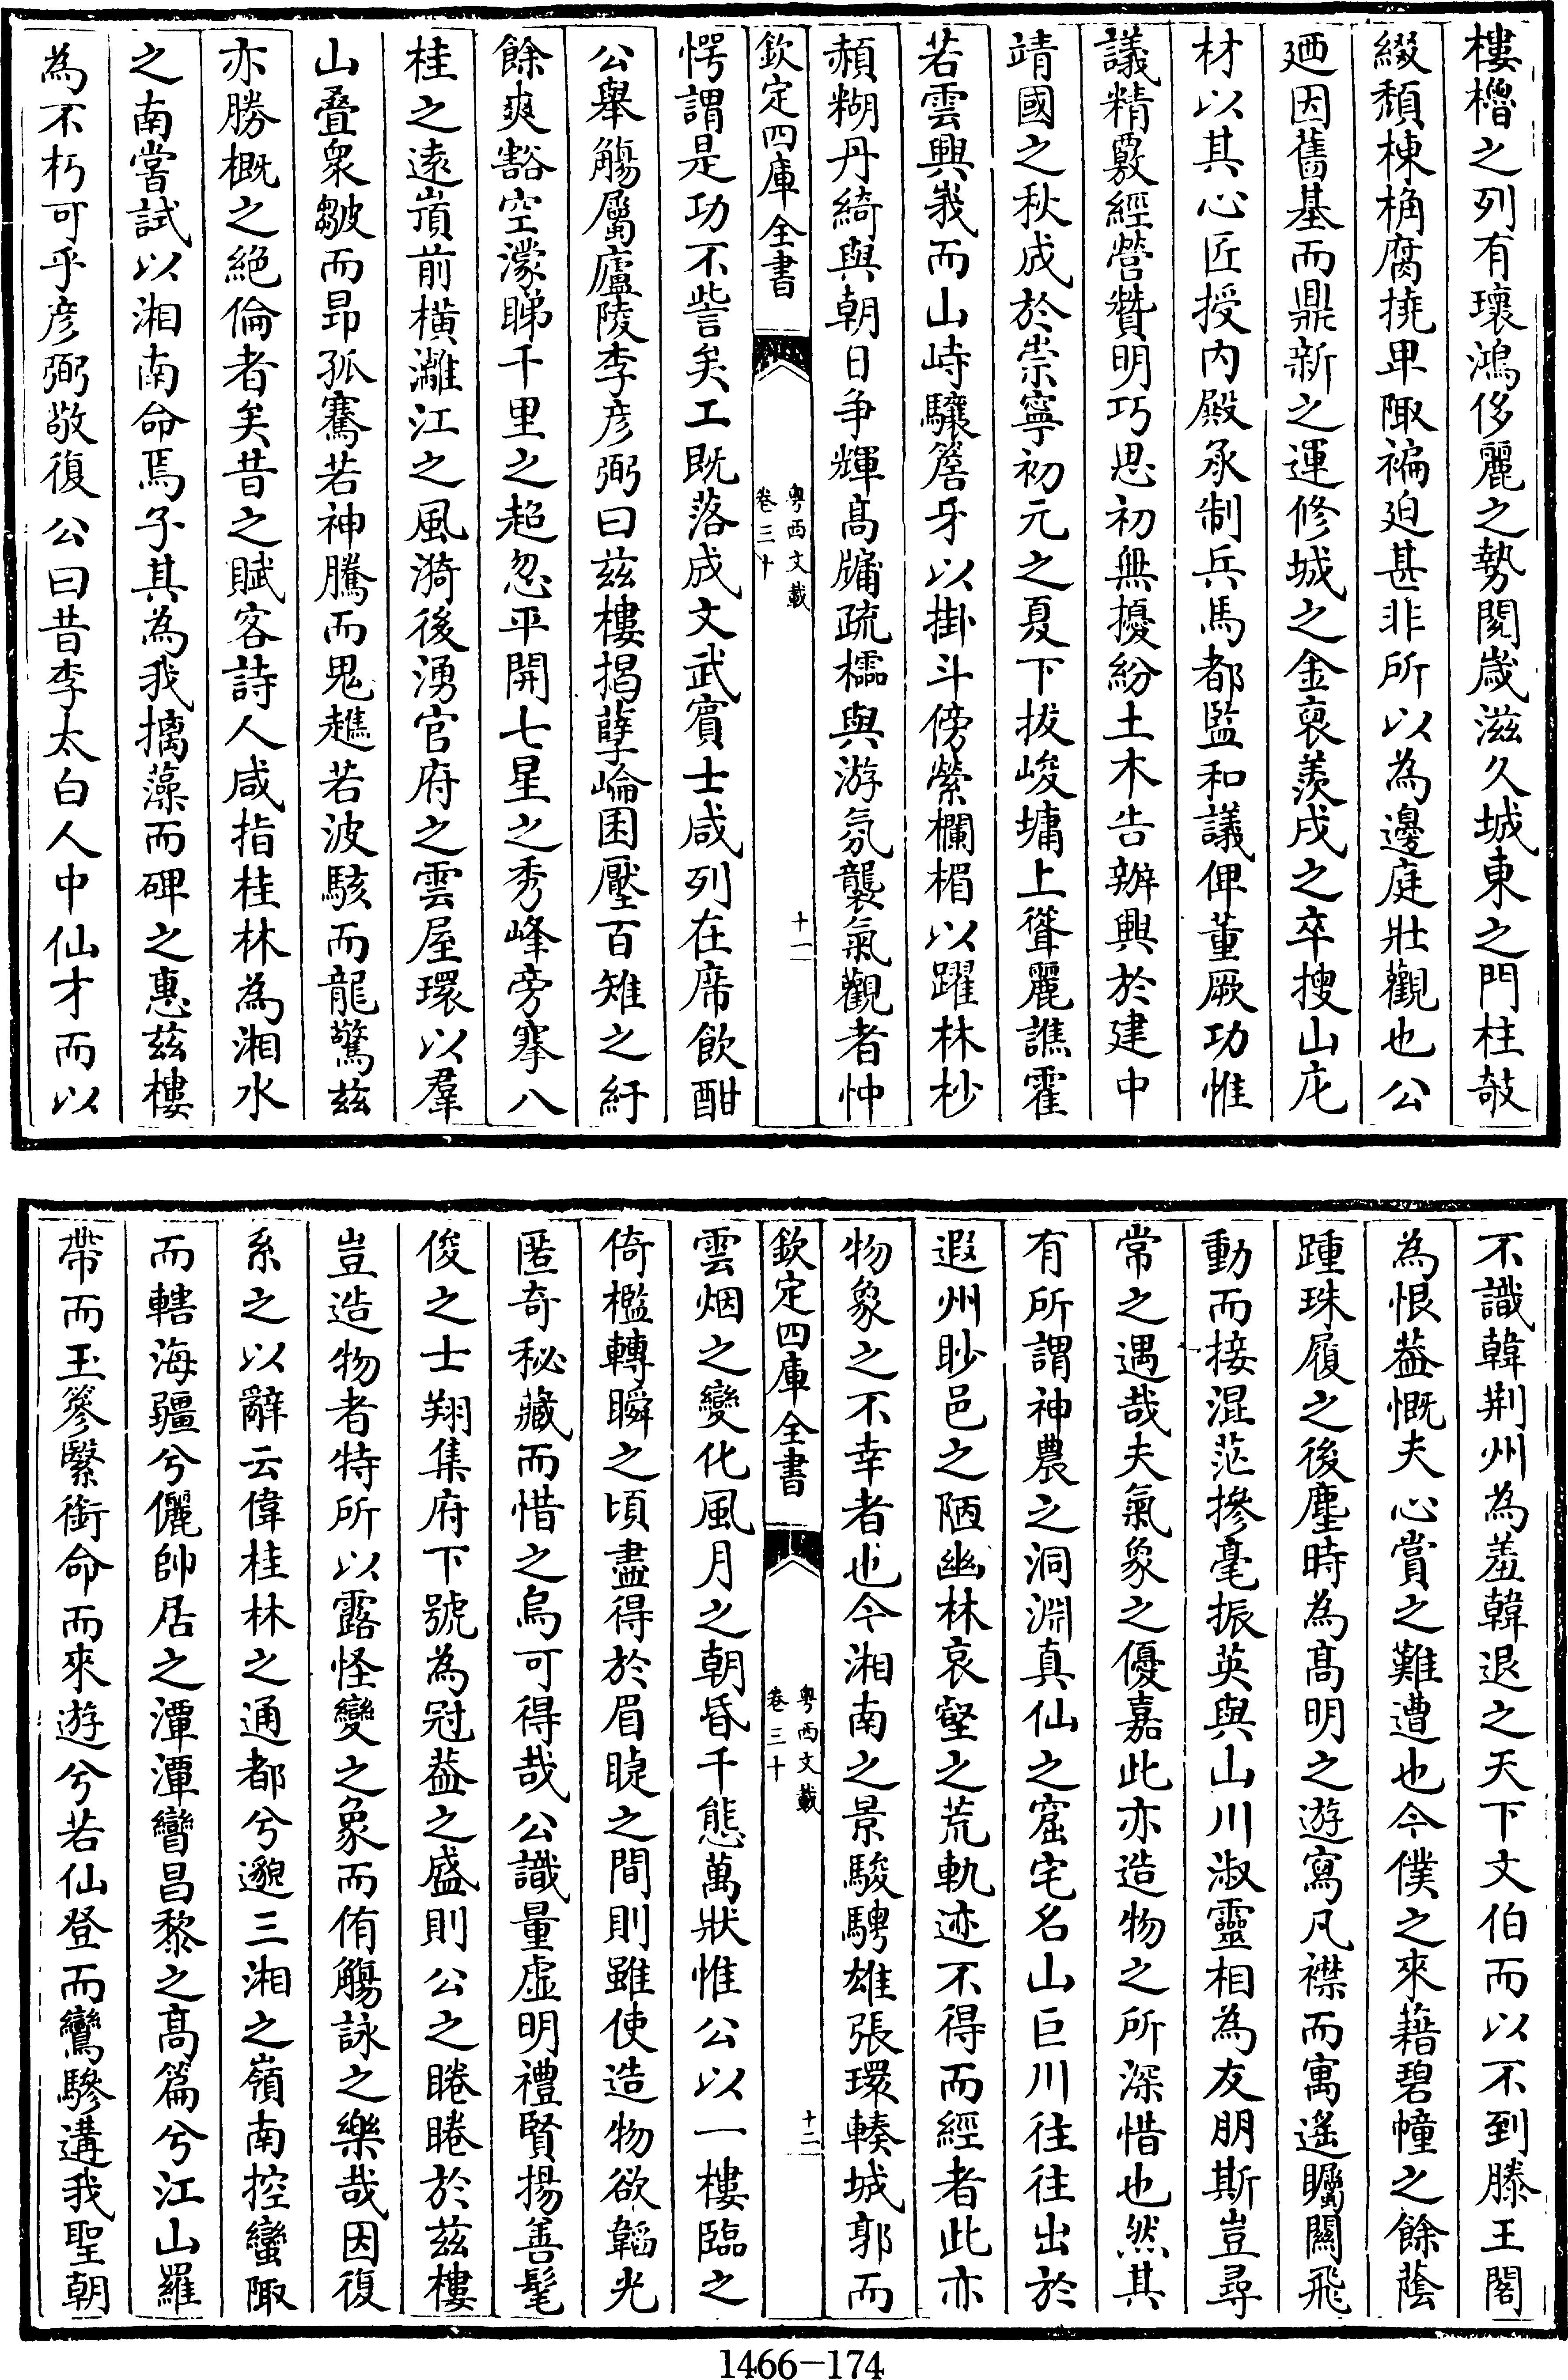 樓櫓之列有瓌鴻侈麗之勢閱歲滋久城東之門柱攲
綴頽棟桷腐撓卑陬褊迫甚非所以為邊庭壯觀也公
廼因舊基而鼎新之運修城之金裒羡戍之卒搜山庀
材以其心匠授内殿承制兵馬都監和議俾董厥功惟
議精覈經營贊明巧思初無擾紛土木告辦興於建中
靖國之秋成於崇寧初元之夏下拔峻墉上聳麗譙霍
若雲興峩而山峙驤簷牙以掛斗傍縈欄楣以躍林杪
頳糊丹綺與朝日争輝髙牖疏櫺與游氛襲氣觀者忡
欽定四庫全書
粤西文載
卷三十
十一
愕謂是功不訾矣工既落成文武賓士咸列在席飲酣
公舉觴屬廬陵李彦弼曰兹樓揭孽崘囷壓百雉之紆
餘爽豁空濛睇千里之超忽平開七星之秀峰旁搴八
桂之遠嵿前橫灕江之風漪後湧官府之雲屋環以羣
山叠衆皺而昻孤騫若神騰而鬼趭若波駭而龍驚兹
亦勝概之絶倫者矣昔之賦客詩人咸指桂林為湘水
之南嘗試以湘南命焉子其為我摛藻而碑之惠兹樓
為不朽可乎彦弼敬復公曰昔李太白人中仙才而以
不識韓荆州為羞韓退之天下文伯而以不到滕王閣
為恨葢慨夫心賞之難遭也今僕之來藉碧幢之餘蔭
踵珠履之後塵時為髙明之遊寫凡襟而寓遥矚闗飛
動而接混茫摻毫振英與山川淑靈相為友朋斯豈尋
常之遇哉夫氣象之優嘉此亦造物之所深惜也然其
有所謂神農之洞淵真仙之窟宅名山巨川往往出於
遐州眇邑之陋幽林哀壑之荒軌迹不得而經者此亦
物象之不幸者也今湘南之景駿騁雄張環輳城郭而
欽定四庫全書
粤西文載
卷三十
十二
雲烟之變化風月之朝昏千態萬狀惟公以一樓臨之
倚檻轉瞬之頃盡得於眉睫之間則雖使造物欲韜光
匿奇秘藏而惜之烏可得哉公識量虛明禮賢揚善髦
俊之士翔集府下號為冠葢之盛則公之睠睠於兹樓
豈造物者特所以露怪變之象而侑觴詠之樂哉因復
系之以辭云偉桂林之通都兮邈三湘之嶺南控蠻陬
而轄海疆兮儷帥居之潭潭𤲬昌黎之髙篇兮江山羅
帶而玉篸繄銜命而來遊兮若仙登而鸞驂遘我聖朝
1466-174